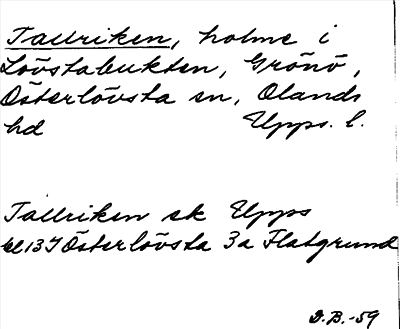 Tallriken, holme i
Lövstabukten, Grönö,
Österlövsta sn, Olands
hd Upps. l.
Tallriken ek Upps
bl 13 I Österlövsta 3a Flatgrund
D.B.-59